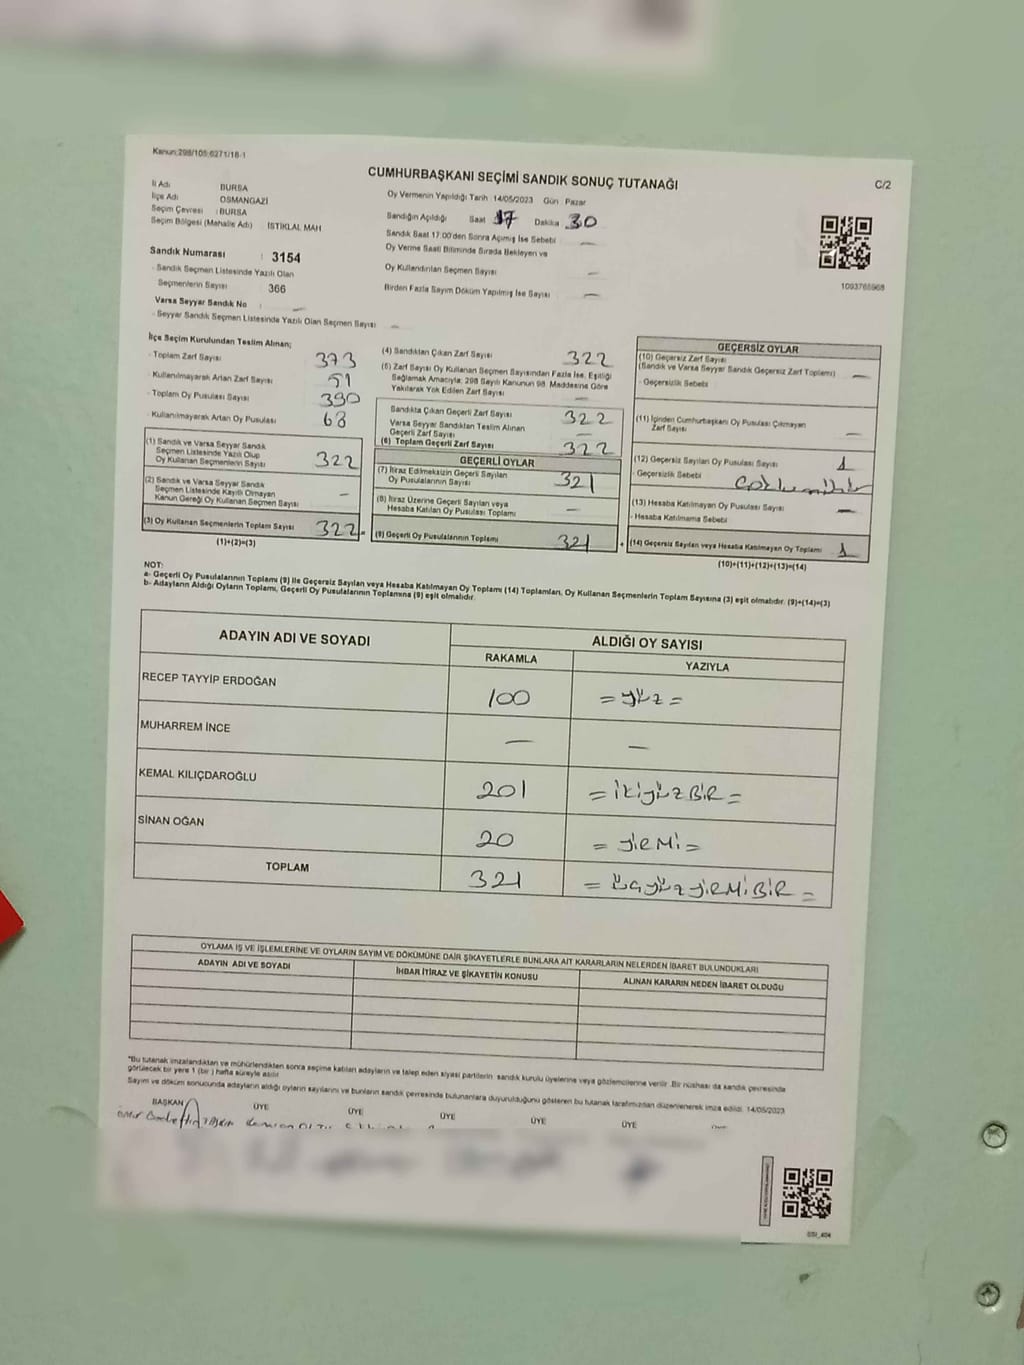 Kanun:298/105;6271/18-1
CUMHURBAŞKANI SEÇİMİ SANDIK SONUÇ TUTANAĞI
C/2
İl Adı BURSA
İlçe Adı OSMANGAZİ
Seçim Çevresi : BURSA
Seçim Bölgesi (Mahalle Adı) İSTİKLAL MAH
Sandık Numarası : 3154
- Sandık Seçmen Listesinde Yazılı Olan
Seçmenlerin Sayısı 366
Varsa Seyyar Sandık No : —
- Seyyar Sandık Seçmen Listesinde Yazılı Olan Seçmen Sayısı —
Oy Vermenin Yapıldığı Tarih 14/05/2023 Gün Pazar
Sandığın Açıldığı Saat 17 Dakika 30
Sandık Saat 17:00'den Sonra Açımış İse Sebebi —
Oy Verme Saati Bitiminde Sırada Bekleyen ve
Oy Kullandırılan Seçmen Sayısı —
Birden Fazla Sayım Döküm Yapılmış İse Sayısı —
1093765968
İlçe Seçim Kurulundan Teslim Alınan;
- Toplam Zarf Sayısı 373
- Kullanılmayarak Artan Zarf Sayısı 51
- Toplam Oy Pusulası Sayısı 390
- Kullanılmayarak Artan Oy Pusulası 68
(1) Sandık ve Varsa Seyyar Sandık
Seçmen Listesinde Yazılı Olup
Oy Kullanan Seçmenlerin Sayısı 322
(2) Sandık ve Varsa Seyyar Sandık
Seçmen Listesinde Kayıtlı Olmayan
Kanun Gereği Oy Kullanan Seçmen Sayısı —
(3) Oy Kullanan Seçmenlerin Toplam Sayısı 322 =
(1)+(2)=(3)
(4) Sandıktan Çıkan Zarf Sayısı 322
(5) Zarf Sayısı Oy Kullanan Seçmen Sayısından Fazla İse, Eşitliği
Sağlamak Amacıyla; 298 Sayılı Kanunun 98. Maddesine Göre
Yakılarak Yok Edilen Zarf Sayısı —
Sandıkta Çıkan Geçerli Zarf Sayısı 322
Varsa Seyyar Sandıktan Teslim Alınan
Geçerli Zarf Sayısı —
(6) Toplam Geçerli Zarf Sayısı 322
GEÇERLİ OYLAR
(7) İtiraz Edilmeksizin Geçerli Sayılan
Oy Pusulalarının Sayısı 321
(8) İtiraz Üzerine Geçerli Sayılan veya
Hesaba Katılan Oy Pusulası Toplamı —
(9) Geçerli Oy Pusulalarının Toplamı 321 +
GEÇERSİZ OYLAR
(10) Geçersiz Zarf Sayısı
(Sandık ve Varsa Seyyar Sandık Geçersiz Zarf Toplamı) —
- Geçersizlik Sebebi
(11) İçinden Cumhurbaşkanı Oy Pusulası Çıkmayan
Zarf Sayısı —
(12) Geçersiz Sayılan Oy Pusulası Sayısı 1
- Geçersizlik Sebebi
(13) Hesaba Katılmayan Oy Pusulası Sayısı —
- Hesaba Katılmama Sebebi
(14) Geçersiz Sayılan veya Hesaba Katılmayan Oy Toplamı 1
(10)+(11)+(12)+(13)=(14)
NOT:
a- Geçerli Oy Pusulalarının Toplamı (9) ile Geçersiz Sayılan veya Hesaba Katılmayan Oy Toplamı (14) Toplamları, Oy Kullanan Seçmenlerin Toplam Sayısına (3) eşit olmalıdır. (9)+(14)=(3)
b- Adayların Aldığı Oyların Toplamı, Geçerli Oy Pusulalarının Toplamına (9) eşit olmalıdır.
ADAYIN ADI VE SOYADI ALDIĞI OY SAYISI
RAKAMLA YAZIYLA
RECEP TAYYİP ERDOĞAN 100 = YÜZ =
MUHARREM İNCE — —
KEMAL KILIÇDAROĞLU 201 = İKİYÜZBİR =
SİNAN OĞAN 20 = YİRMİ =
TOPLAM 321 = ÜÇYÜZYİRMİBİR =
OYLAMA İŞ VE İŞLEMLERİNE VE OYLARIN SAYIM VE DÖKÜMÜNE DAİR ŞİKAYETLERLE BUNLARA AİT KARARLARIN NELERDEN İBARET BULUNDUKLARI
ADAYIN ADI VE SOYADI İHBAR İTİRAZ VE ŞİKAYETİN KONUSU ALINAN KARARIN NEDEN İBARET OLDUĞU
*Bu tutanak imzalandıktan ve mühürlendikten sonra seçime katılan adayların ve talep eden siyasi partilerin sandık kurulu üyelerine veya gözlemcilerine verilir. Bir nüshası da sandık çevresinde
görülecek bir yere 1 (bir) hafta süreyle asılır
Sayım ve döküm sonucunda adayların aldığı oyların sayılarını ve bunların sandık çevresinde bulunanlara duyurulduğunu gösteren bu tutanak tarafımızdan düzenlenerek imza edildi. 14/05/2023
BAŞKAN ÜYE ÜYE ÜYE ÜYE ÜYE